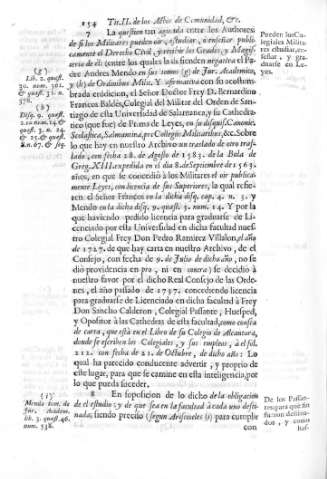 154 Tit. II. de los Actos de Comunidad, &c.
7 La question tan agitada entre los Authores
de si los Militares pueden oir, estudiar, ò enseñar publi-
camente el Derecho Civil, y recibir los Grados, y Magis-
terio de èl: (entre los quales la sienten negativa el Pe
Andres Mendo en sus tomos (g) de Jur. Academico,
y (h) de Ordinibus Milit. Y afirmativa con su acostum-
brada erudicion, el Señor Doctor Frey D. Bernardino
Francos Baldès, Colegial del Militar del Orden de Santia-
go de esta Universidad de Salamanca, y su Cathedra-
tico (que fue) de Prima de Leyes, en su disquis. Canonic.
Scolastica, Salmantina, pro Collegiis Militaribus, &c. Sobre
lo que hay en nuestro Archivo un traslado de otro tras-
lado, con fecha 28. de Agosto de 1583. de la Bula de
Greg. XIII. expedida en el dia 8. de Septiembre de 1563.
años, en que se concediò à los Militares el oir publica-
mente Leyes, con licencia de sus Superiores, la qual refie-
ren el Señor Francos en la dicha disq. cap. 4. n. 3. y
Mendo en la dicha disq. 9. quæst. 3. num. 14. Y por la
que haviendo pedido licencia para graduarse de Li-
cenciado por esta Universidad en dicha facultad nuestro
Colegial Frey Don Pedro Ramirez Villalon, el año
de 1727. de que hay carta en nuestro Archivo, de el
Consejo, con fecha de 9. de Julio de dicho año, no se
diò providencia en pro, ni en contra) se decidiò à
nuestro favor por el dicho Real Consejo de las Orde-
nes, el año passado de 1757. concediendo licencia
para graduarse de Licenciado en dicha facultad à Frey
Don Sancho Calderon, Colegial Passante, Huesped,
y Opositor à las Cathedras de esta facultad, como consta
de carta, que està en el Libro de su Colegio de Alcantara,
donde se escriben los Colegiales, y sus empleos, à el fol.
212. con fecha de 21. de Octubre, de dicho año: Lo
qual ha parecido conducente advertir, y proprio de
este lugar, para que se camine en esta inteligencia, por
lo que pueda suceder.
8 En suposicion de lo dicho de la obligacion
de el estudio: y de que sea en la facultad à cada uno desti-
nada; siendo preciso (segun Aristoteles (i) para cumplir
con
Pueden los Co-
legiales Milita-
res estudiar, en-
señar, y gra-
duarse en Le-
yes.
(g)
Lib. 2. quæst.
30. num. 301.
& quæst. 31. n.
378.
(h)
Disq. 9. quæst.
2. &
(i)
Mendo
Jur. Academ.
lib. 3. quæst. 46.
num. 538.
De los Passan-
tes; para què es-
tàn destina-
dos, y
has-